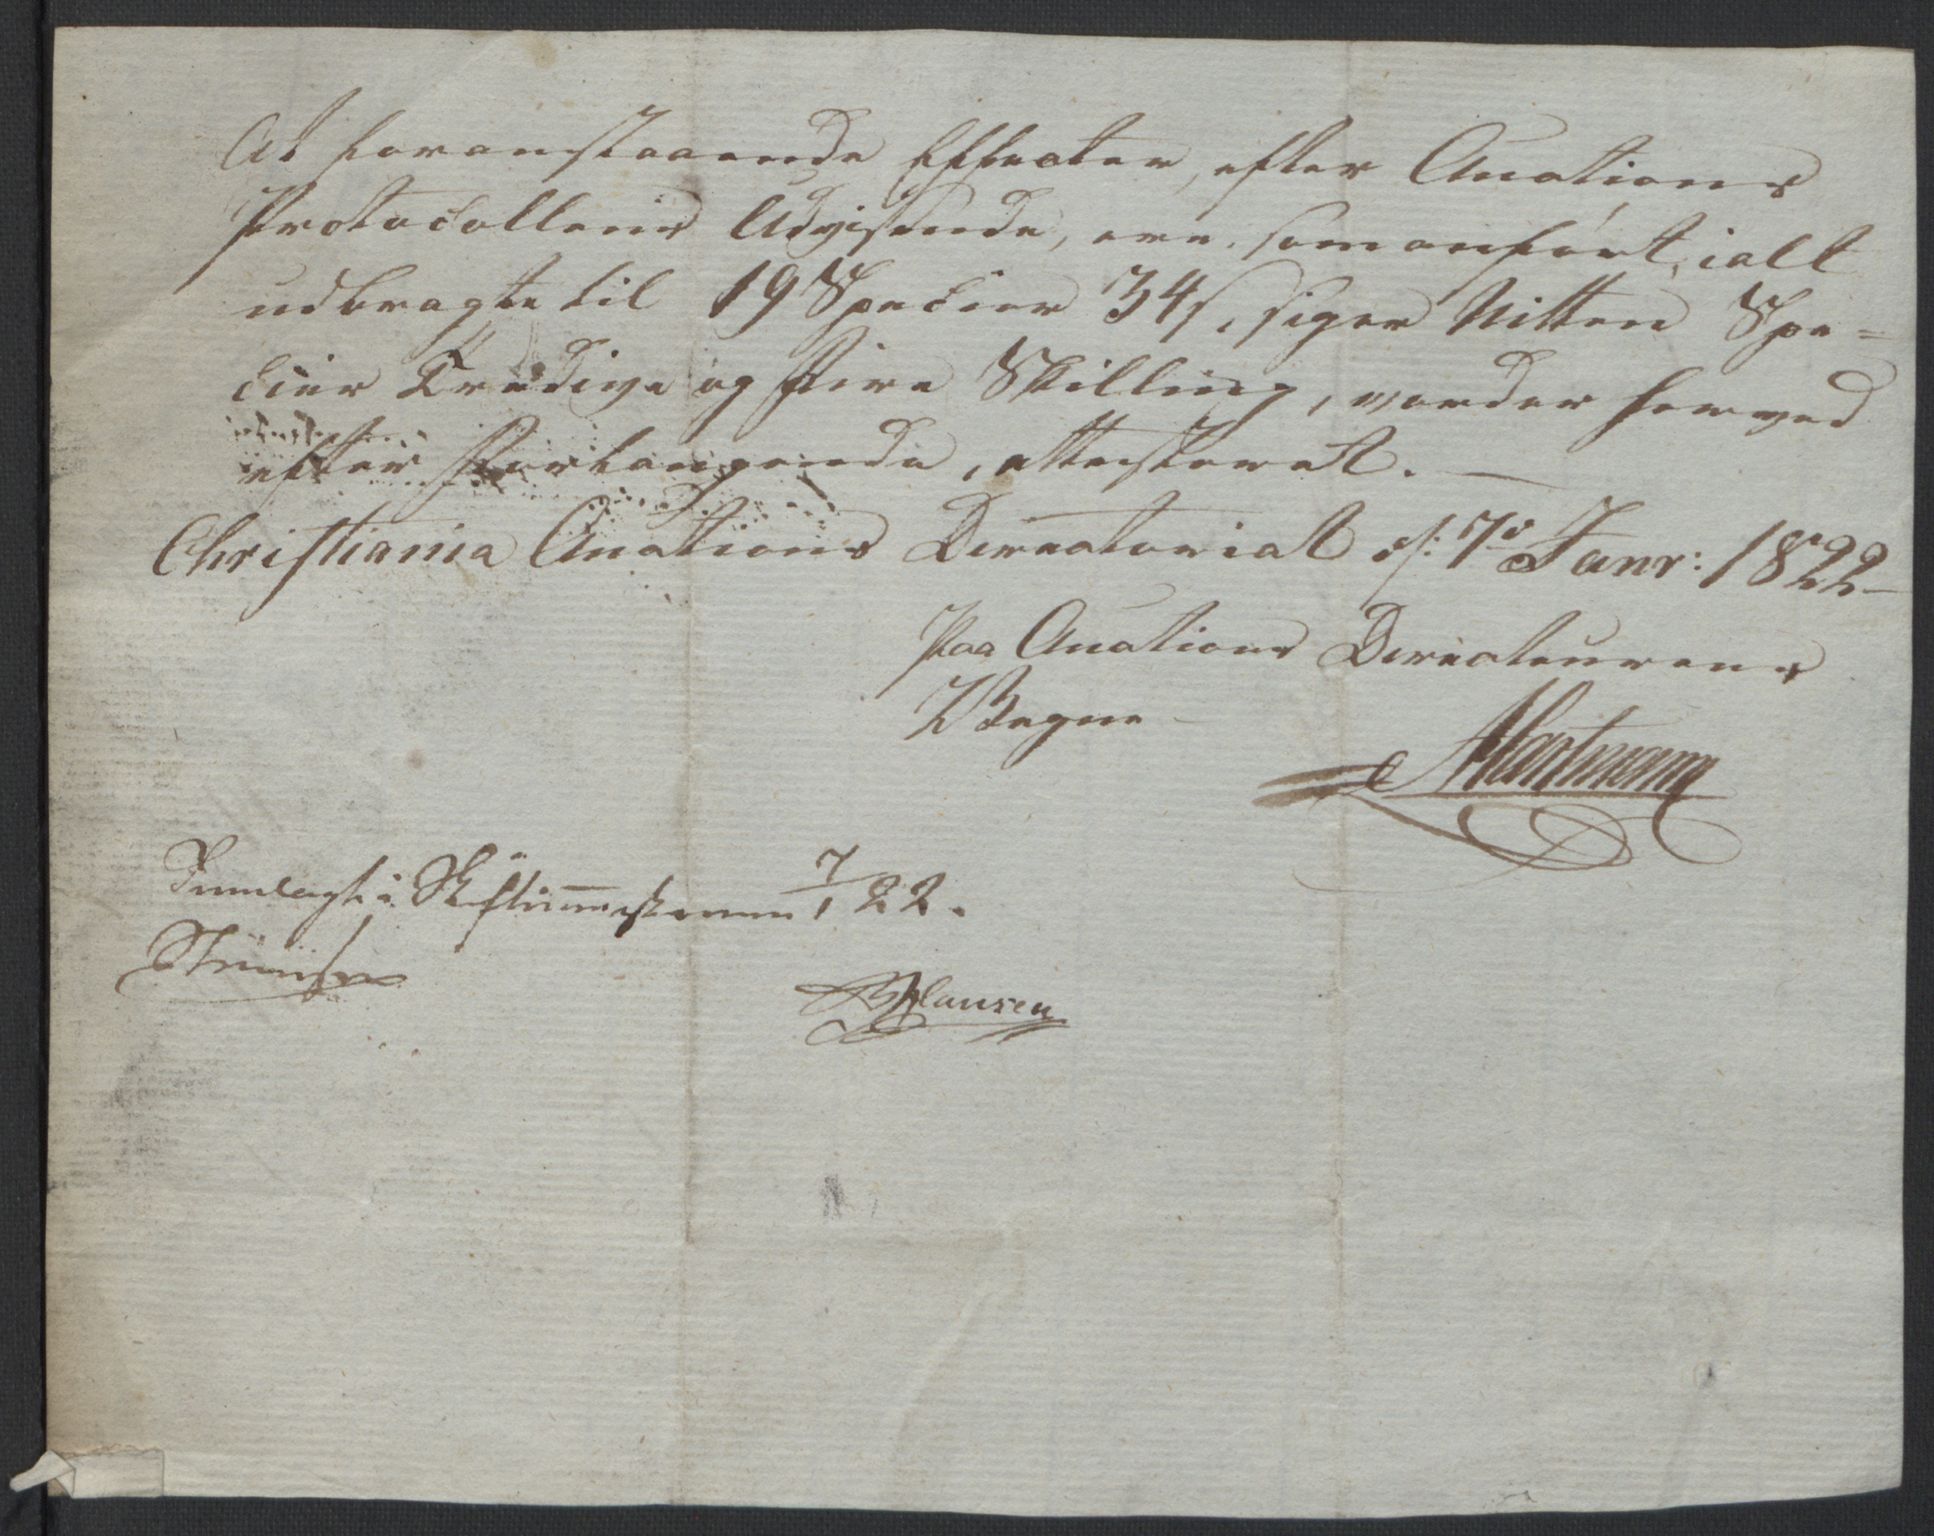 At foranstaaende Effecter, efter Auctions
Protocollens Udvisende, ere, som anført, ialt
udbragte til 19 Specier 34 s, siger Nitten Spe=
cier Tredive og Fire Skilling, vorder herved
efter Forlangende, attesteret. —
Christiania Auctions Directorial d: 7de Janr: 1822 —
Paa Auctions Directeurens
Vegne
Hartmann
Fremlagt i Skiftesamlingen 7/1 22.
BHansen